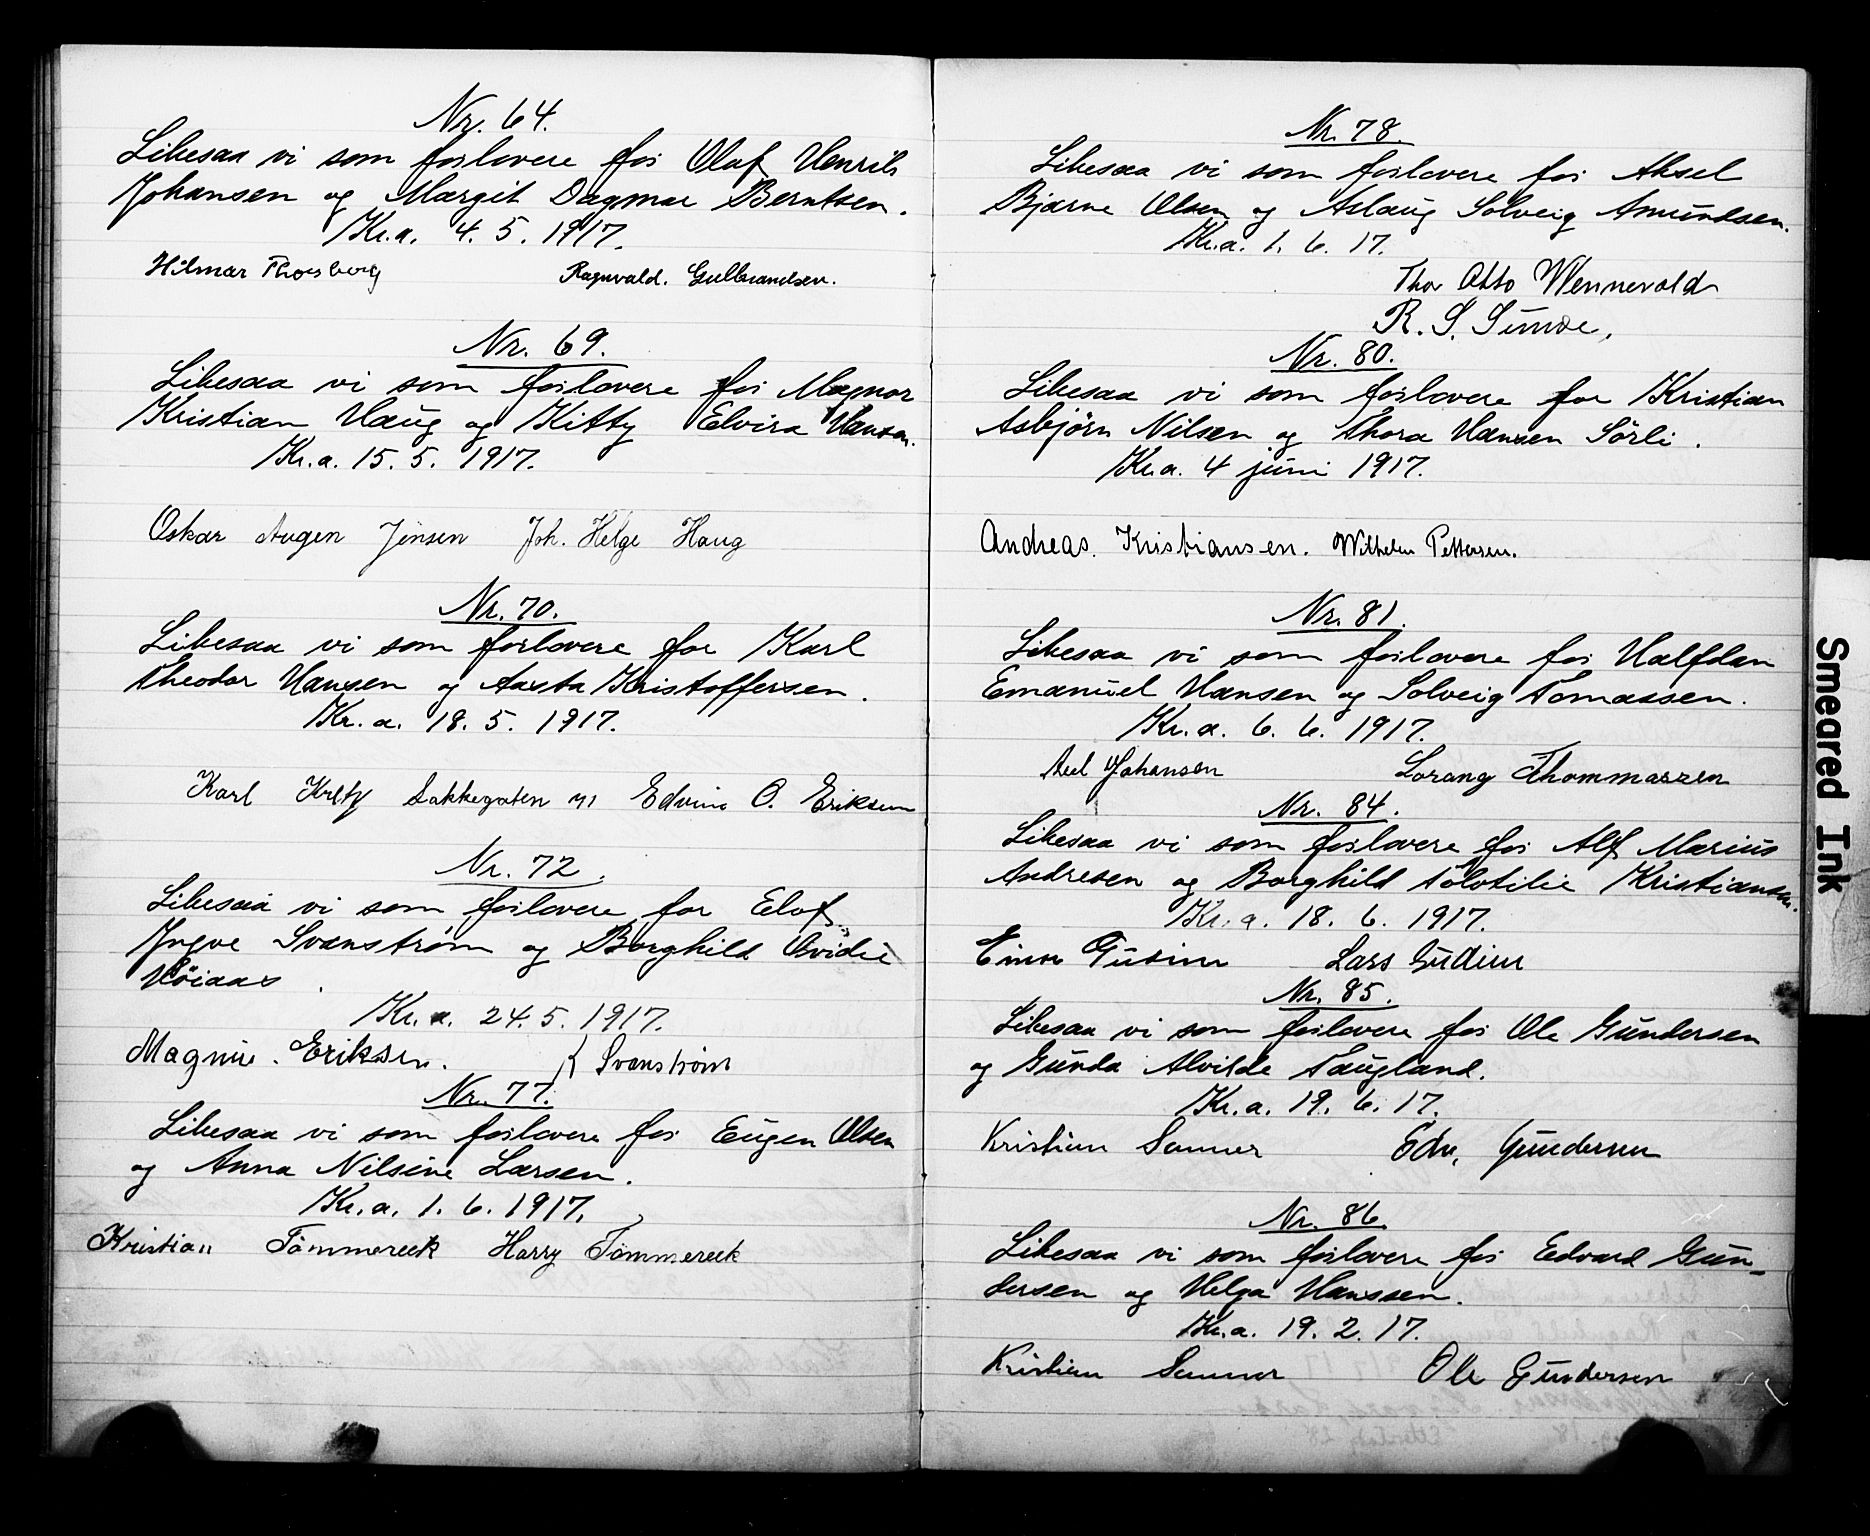 Nr. 64.
Likesaa vi som forlovere for Olaf Henrik
Johansen og Margit Dagmar Berntsen.
Kr.a. 4. 5. 1917.
Hilmar Thorsberg Ragnvald. Gulbrandsen.
Nr. 69.
Likesaa vi som forlovere for Magnor
Kristian Haug og Kitty Elvira Hansen.
Kr.a. 15. 5. 1917.
Oskar Augen Jensen Joh. Helge Haug
Nr. 70.
Likesaa vi som forlovere for Karl
Theodor Hansen og Aasta Kristoffersen.
Kr.a. 18. 5. 1917.
Karl Lakkegaten 71 Edvin O. Eriksen
Nr. 72.
Likesaa vi som forlovere for Elof
Yngve Svanstrøm og Borghild Ovidie
Höiaas
Kr.a. 24. 5. 1917.
Magnus. Eriksen. K Svanstrøm
Nr. 77.
Likesaa vi som forlovere for Eugen Olsen
og Anna Nilsine Larsen.
Kr.a. 1. 6. 1917.
Kristian Tömmereek Harry Tömmereek
Nr. 78.
Likesaa vi som forlovere for Aksel
Bjarne Olsen og Aslaug Solveig Amundsen.
Kr.a. 1. 6. 17.
Thor Otto Wennevold
R. S. Sunde,
Nr. 80.
Likesaa vi som forlovere for Kristian
Asbjörn Nilsen og Thora Hansen Sörli.
Kr.a. 4 juni 1917.
Andreas. Kristiansen. Wilhelm Pettersen.
Nr. 81.
Likesaa vi som forlovere for Halfdan
Emanuel Hansen og Solveig Tomassen.
Kr.a. 6. 6. 1917.
Axel Johansen Lorang Thommassen
Nr. 84.
Likesaa vi som forlovere for Alf Marius
Andresen og Borghild Kristiansen.
Kr.a. 18. 6. 1917.
Einar Gudim Lars Gudim
Nr. 85.
Likesaa vi som forlovere for Ole Gundersen
og Gunda Alvilde Taugland.
Kr.a. 19. 6. 17.
Kristian Sanner Edv. Gundersen
Nr. 86.
Likesaa vi som forlovere for Edvard Gun-
dersen og Helga Hanssen.
Kr.a. 19. 2. 17.
Kristian Sanner Ole Gundersen
Smeared Ink